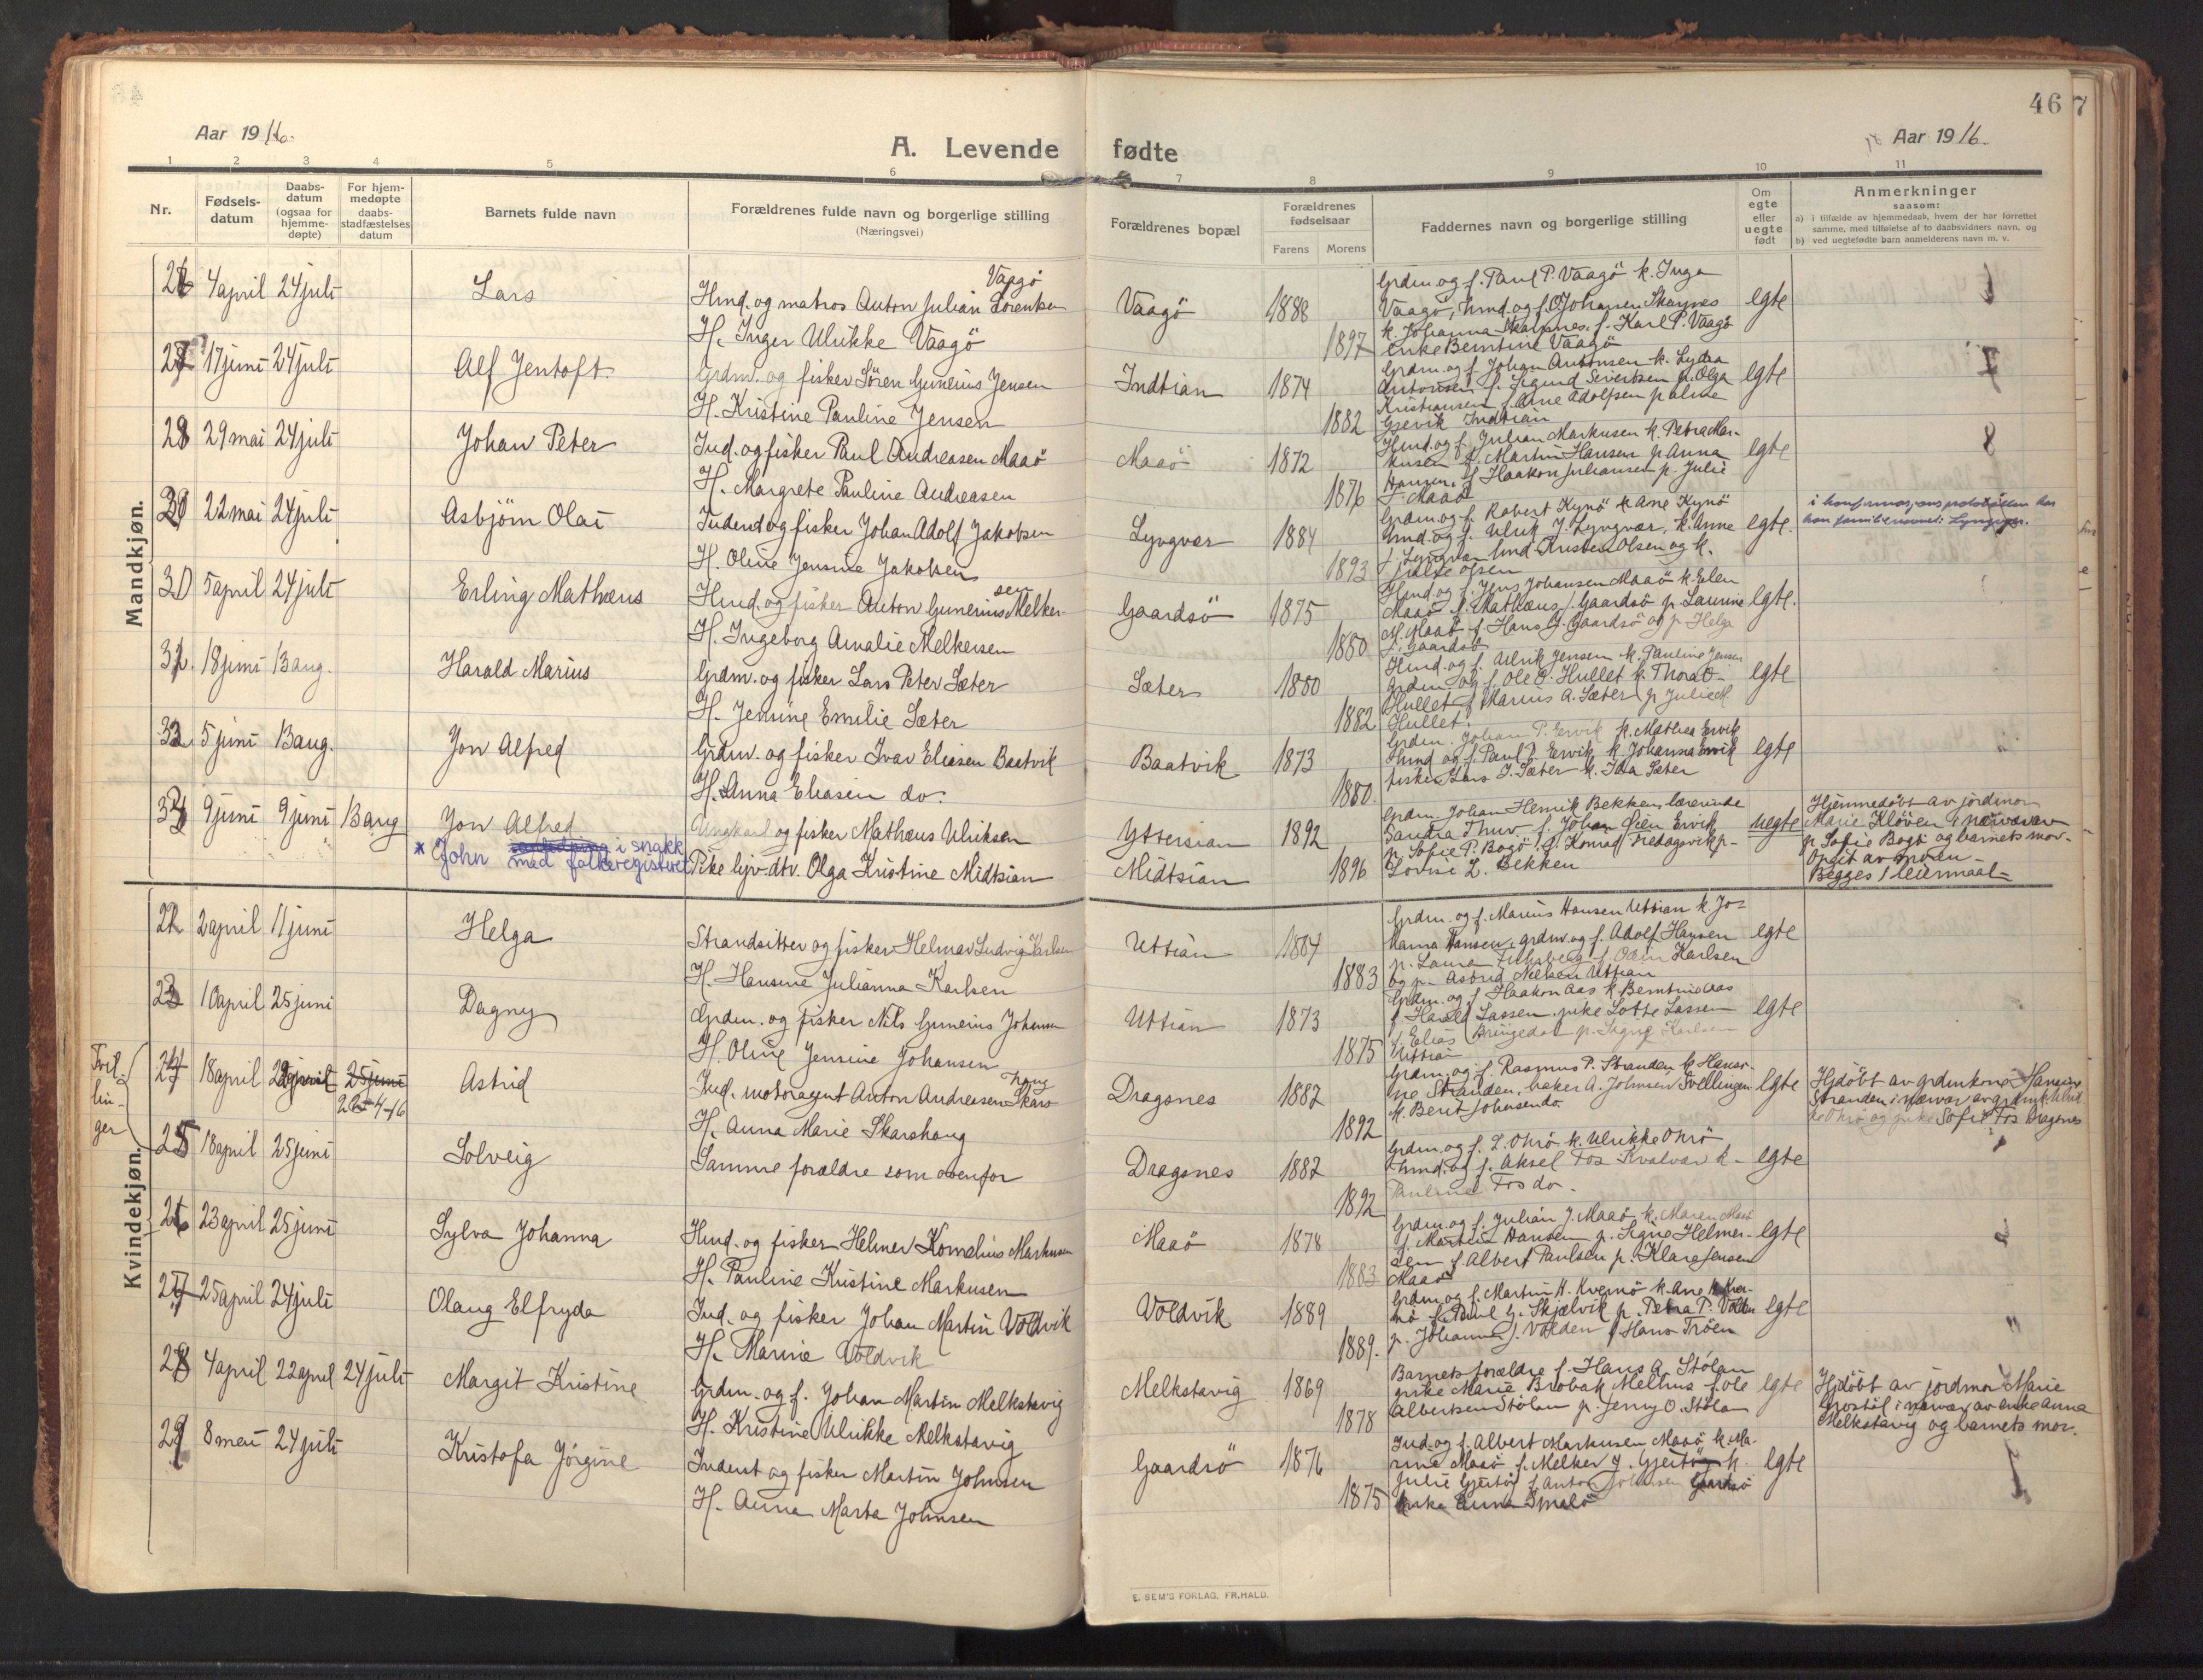 46
7
Aar 1916.
A. Levende fødte
Aar 1916.
1 2 3 4 5 6 7 8 9 10 11
Nr.
Fødsels-datum
Daabs-datum (ogsaa for hjemme-døpte)
For hjem-medøpte daabs-stadfæstelses datum
Barnets fulde navn
Forældrenes fulde navn og borgerlige stilling
(Næringsvei)
Forældrenes bopæl
Forældrenes fødselsaar
Farens Morens
Faddernes navn og borgerlige stilling
Om egte eller uegte født
Anmerkninger
saasom:
a) i tilfælde av hjemmedaab, hvem der har forrettet samme, med tilføielse af to daabsvidners navn, og
b) ved uegtefødte barn anmelderens navn m. v.
Mandkjøn.
26 4 april 24 juli Lars
Hmd. og matros Anton Julian Lorentsen Vaagö
H. Inger Ulrikke Vaagö
Vaagö 1888 1897
Grdm. og f. Paul P. Vaagö k. Inga
Vaagö, hmd. og f. O Johansen Skarpnes
k. Johanna Skarpnes, f. Karl P. Vaagö
enke Berntine Vaagö
egte
27 17 juni 24 juli Alf Jentoft
Grdm. og fisker Sören Gunerius Jensen
H. Kristine Pauline Jensen
Indtian 1874 1882
Grdm. og f. Johan Antonsen k. Lydia
Antonsen f. Sigurd Sivertsen p. Olga
Kristiansen f. Arne Adolfsen p Aline
Gjevik Indtian
egte
28 29 mai 24 juli Johan Peter
Ind. og fisker Paul Andreasen Maaö
H. Margrete Pauline Andreasen
Maaö 1872 1876
Hmd. og f. Julian Markusen k. Petra Mar-
kusen f. Martin Hansen p Anna
Hansen, f. Haakon Juliansen p. Julie
J. Maaö
egte
8
29 22 mai 24 juli Asbjörn Olai
Inderst og fisker Johan Adolf Jakobsen
H. Oline Jensine Jakobsen
Lyngvær 1884 1893
Grdm. og f. Robert Kynö k Ane Kynö
hmd. og f. Ulrik J. Lyngvær, k. Anne
J. Lyngvær hmd. Kristen Olsen og k.
Julie Olsen
egte.
30 5 april 24 juli Erling Mathæus
Hmd. og fisker Anton Gunerius Melker-
sen
H. Ingeborg Amalie Melkersen
Gaardsö 1875 1880
Hmd. og f. Jens Johansen Maaö k. Elen
Maaö f. Mathæus J. Gaardsö p. Laurine
M. Maaö f. Hans J. Gaardsö og p. Helga
J. Gaardsö
egte.
31. 18 juni 13 aug. Harald Marius
Grdm. og fisker Lars Peter Sæter
H. Jensine Emilie Sæter
Sæter 1880 1882
Hmd. og f. Ulrik Jensen k. Pauline Jensen
grdm. og f. Ole O. Hullet k. Thora O-
Hullet f. Marius A. Sæter p Julie M
Hullet.
egte
32 5 juni 13 aug. Jon Alfred
Grdm. og fisker Ivar Eliasen Baatvik
H. Anna Eliasen do.
Baatvik 1873 1880.
Grdm. Johan P. Ervik k. Mathea Ervik
Hmd. og f. Paul P. Ervik k. Johanna Ervik
fisker Lars J. Sæter k. Ida Sæter
egte
33 9 juni 9 juni 13 aug Jon Alfred
* John i snakk
med folkeregisteret
Ungkarl og fisker Mathæus Ulriksen
Pike Olga Kristine Midtsian
Yttersian 1892
Midtsian 1896
Grdm. Johan Henrik Bekken, lærerinde
Sandra Thur f. Johan Ervik
p. Sofie P. Bogö, f. Konrad p-
Lovise L. Bekken
uegte
Hjemmedöbt av jordmor
Marie Klöven i nærvær av
p. Sofie Bogö og barnets mor.
Opgit av moren-
Begges 1 leiermaal-
Kvindekjøn.
22 2 april 11 juni Helga
Strandsitter og fisker Helmer Ludvig Karlsen
H. Hansine Julianna Karlsen
Uttian 1884 1883
Grdm. og f. Marius Hansen Uttian k. Jo-
hanna Hansen, grdm. og f. Adolf Hansen
p. Laura f. Karlsen
og p. Astrid Nielsen Uttian
egte
23 10 april 25 juni Dagny
Grdm. og fisker Nils Gunerius Johansen
H. Oline Jensine Johansen
Uttian 1873 1875
Grdm. og f. Haakon Aas k. Berntine Aas
f. Harald Lassen, pike Lotte Lassen
f. Elias p. Signe Karlsen
Uttian
egte
Tvil-
lin-
ger
24 18 april 22 april 25 juni
22-4-16
Astrid
Ind. motoragent Anton Andreasen Skars-
haug
H. Anna Marie Skarshaug
Dragsnes 1882 1892
Grdm. og f. Rasmus P. Stranden k. Hansi-
ne Stranden, baker A. Johnsen Svellingen
k. Berit Johnsen do.
egte
Hjdöbt av grdmkone Hansine
Stranden i nærvær av
og pike Sofie Fos Dragsnes
25 18 april 25 juni Solveig
Samme forældre som ovenfor
Dragsnes 1882 1892
Grdm. og f. L. Ohrö k. Ulrikke Ohrö
hmd. og f. Aksel Fos Kvalvær k-
Pauline Fos do-
egte
26 23 april 25 juni Sylva Johanna
Hmd. og fisker Helmer Kornelius Markusen
H. Pauline Kristine Markusen
Maaö 1878 1883
Grdm. og f. Julian J. Maaö k. Maren Maaö
f. Martin Hansen p. Signe Helmer-
sen f. Albert Paulsen p. Klara Jensen
Maaö
egte
27 25 april 24 juli Olaug Elfryda
Ind. og fisker Johan Martin Voldvik
H. Marine Voldvik
Voldvik 1889 1889.
Grdm. og f. Martin H. Kvernö k. Ane Kver-
nö f. Paul G. Skjælvik p. Petra P. Valden
p. Johanna J. Valden f. Hans Tröen
egte
28 4 april 22 april 24 juli Margit Kristine
Grdm. og f. Johan Martin Melkstavig
H. Kristine Ulrikke Melkstavig
Melkstavig 1869 1878
Barnets forældre f. Hans A. Stölan
pike Marie Brobak Melhus f. Ole
Albertsen Stölan p. Jenny O. Stölan
egte
Hjdöbt av jordmor Marie
i nærvær av enke Anna
Melkstavig og barnets mor.
29 8 mai 24 juli Kristofa Jörgine
Inderst og fisker Martin Johnsen
H. Anna Marta Johnsen
Gaardsö 1876 1875
Ind. og f. Albert Markusen Maaö k. Ma-
rine Maaö f. Melker J. Gjertöy k.
Julie Gjertöy f. Anton Johansen Gaardsö
pike Anna Smalö
egte
E. SEM'S FORLAG, FR.HALD.